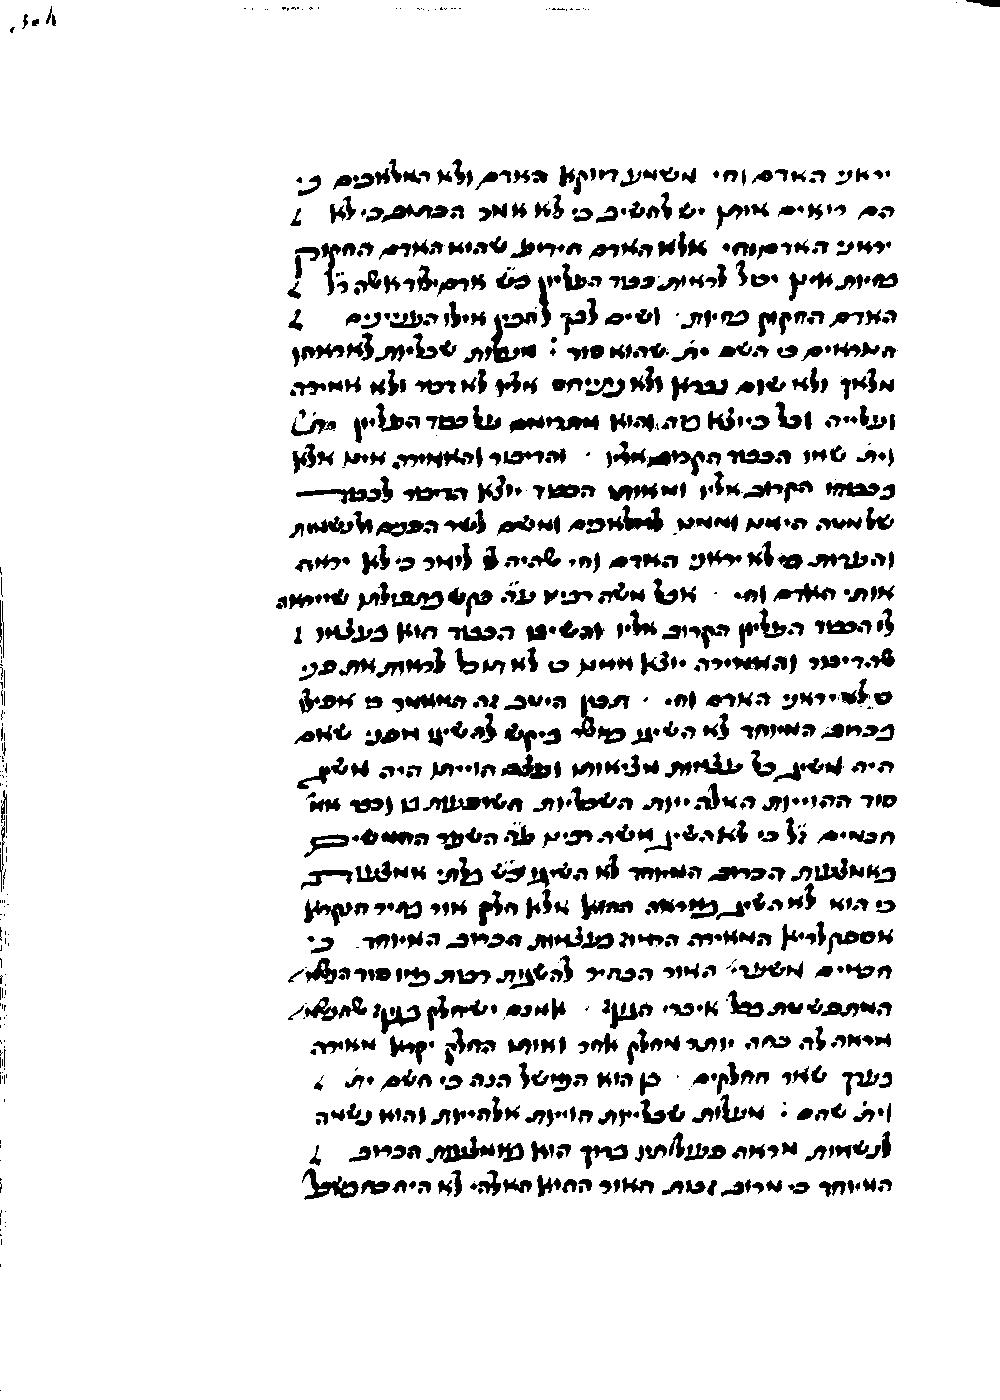 יראני האדם וחי משמע דווקא האדם ולא המלאכים כי
הם רואים אותו יש להשיב כי לא אמר הכתוב כי לא
יראני האדם וחי אלא האדם הידוע שהוא האדם החקוק
בחיות אינו יכול לראות כבוד העליון
האדם החקוק בחיות ושים לבך להבין אילו העניינים
המראים כי השם ית' שהוא סוד מעלות שכליות לא ראהו
מלאך ולא שום נברא ולא נתייחס אליו לא דבור ולא אמירה
ועלייה וכל כיוצא בזה והוא מתרומם על כבוד העליון
וית' שמו הכבוד הקרוב אליו והדיבור והאמירה אינו אלא
בכבודו הקרוב אליו ומאותו הכבוד יוצא הדיבור לכבוד
שלמטה הימנו וממנו למלאכים ומשם לשר הפנים ולנשמות
והעדות כי לא יראני האדם וחי שהיה לו לומר כי לא יראה
אותי האדם וחי אבל משה רבינו ע"ה בקש בתפולתו שייראה
לו הכבוד העליון הקרוב אליו והשיבו הכבוד הוא בעצמו
שהדיבור והאמירה יוצא ממנו כי לא תוכל לראות את פני
כי לא יראני האדם וחי תבין היטב זה המאמר כי אפילו
בכרוב המיוחד לא השיג כאשר ביקש להשיג מפני שאם
היה משיג כל עצמות מציאותו ועצם הוייתו היה משיג
סוד ההוייות האלהייות השכליות המשפעות בו וכבר אמ'
חכמים ז"ל כי לא השיג משה רבינו ע"ה השער החמשים
באמצעות הכרוב המיוחד לא השיג בלתי אמצעו
כי הוא לא השיג במראה ההוא אלא חלק אור בהיר הנקרא
אספקלריא המאירה ההויה מעצמות הכרוב המיוחד כי
חכמים האור הבהיר להשגות רבות סוד
המתפשטת בכל איברי הגוף אמנם יש חלק בגוף
מראה לה כחה יותר מחלק אחר ואותו החלק יקרא מאירה
בערך שאר החלקים כן הוא המשל הנה כי השם ית'
וית' שהם מעלות שכליות הוייות אלהייות והוא נשמה
לנשמות מראה פעולתו ברוך הוא באמצעות הכרוב
המיוחד כי מרוב זכות האור ההוא האלהי לא היה כח